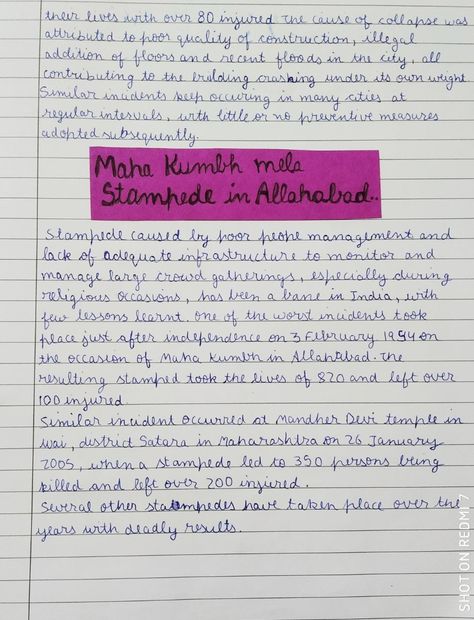 their lives with over 80 injured The cause of collapse was
attributed to poor quality of construction, illegal
addition of floors and recent floods in the city, all
contributing to the building crashing under its own weight.
Similar incidents keep occuring in many cities at
regular intervals, with little or no preventive measures
adopted subsequently.
Maha Kumbh mela
Stampede in Allahabad..
Stampede caused by poor people management and
lack of adequate infrastructure to monitor and
manage large crowd gatherings, especially during
religious occasions, has been a bane in India, with
few lessons learnt. one of the worst incidents took
place just after independence on 3 February 1954 on
the occasion of Maha Kumbh in Allahabad. The
resulting stamped took the lives of 820 and left over
100 injured.
Similar incident occurred at Mandher Devi temple in
wai, district Satara in Maharashtra on 26 January
2005, when a stampede led to 350 persons being
killed and left over 200 injured.
Several other statempedes have taken place over the
years with deadly results.
SHOT ON REDMI 7